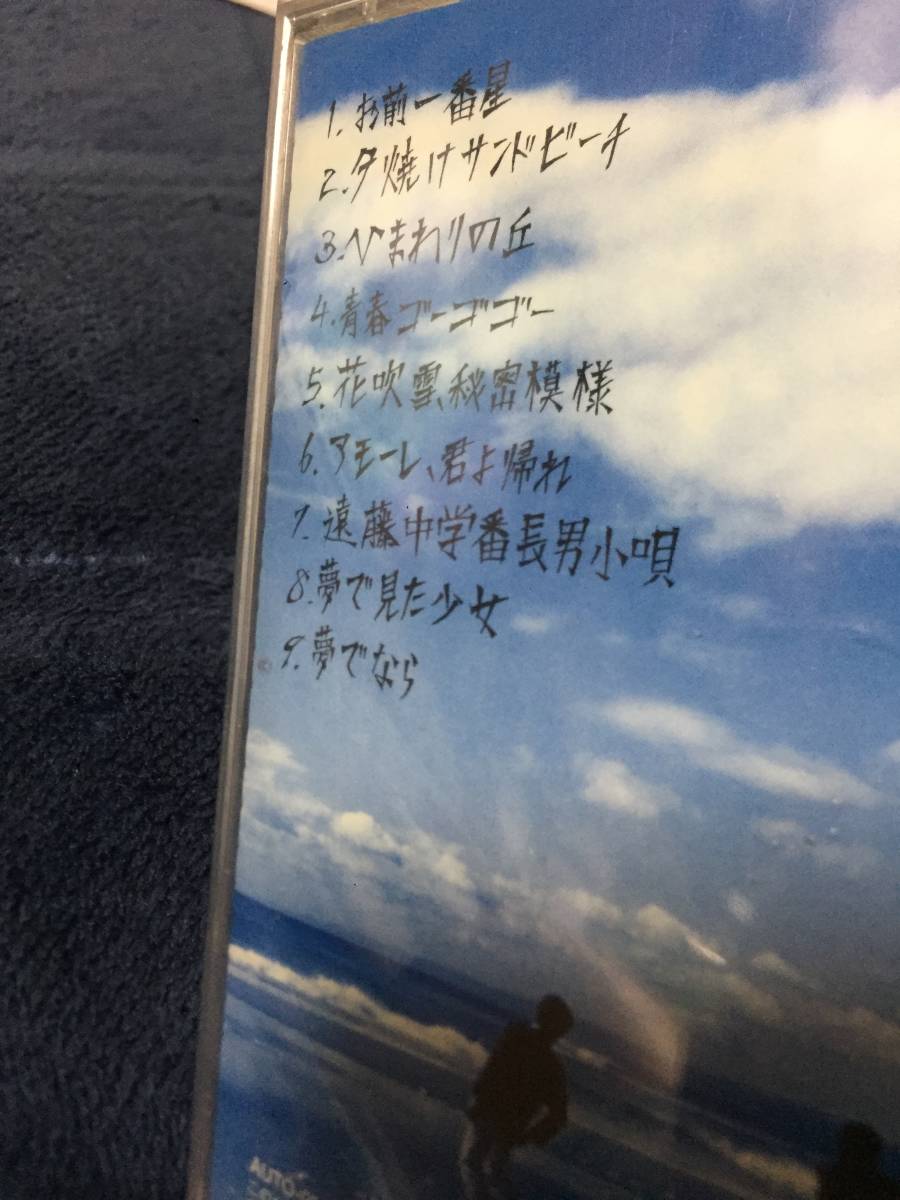 1. お前一番星
2. 夕焼けサンドビーチ
3. ひまわりの丘
4. 青春ゴーゴゴー
5. 花吹雪、秘密模様
6. アモーレ、君よ帰れ
7. 遠藤中学番長男小唄
8. 夢で見た少女
9. 夢でなら